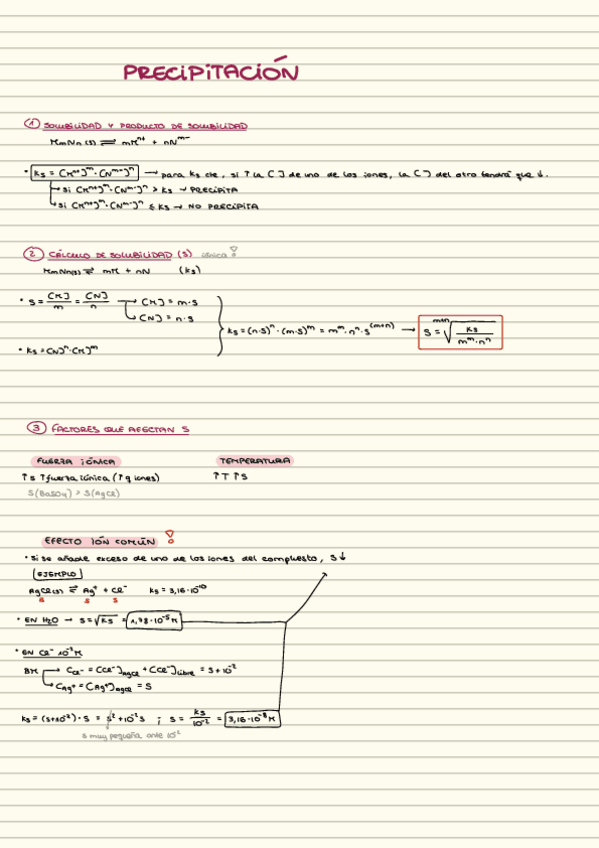 PRECIPITACIÓN
① SOLUBILIDAD Y PRODUCTO DE SOLUBILIDAD
MmNn (s) ⇌ mMⁿ⁺ + nNᵐ⁻
• Ks = [Mⁿ⁺]ᵐ · [Nᵐ⁻]ⁿ → para Ks cte, si ↑ la [ ] de uno de los iones, la [ ] del otro tendrá que ↓.
→ si [Mⁿ⁺]ᵐ · [Nᵐ⁻]ⁿ > Ks → PRECIPITA
→ si [Mⁿ⁺]ᵐ · [Nᵐ⁻]ⁿ ≤ Ks → NO PRECIPITA
② CÁLCULO DE SOLUBILIDAD (S) iónica !
MmNn(s) ⇌ mM + nN (Ks)
• S = [M]/m = [N]/n → [M] = m·s
→ [N] = n·s
Ks = (n·s)ⁿ · (m·s)ᵐ = mᵐ · nⁿ · s⁽ᵐ⁺ⁿ⁾ → S = ᵐ⁺ⁿ√(Ks / mᵐ·nⁿ)
• Ks = [N]ⁿ · [M]ᵐ
③ FACTORES QUE AFECTAN S
FUERZA IÓNICA TEMPERATURA
↑s ↑fuerza iónica (↑q iones) ↑T ↑S
S(BaSO₄) > S(AgCl)
EFECTO IÓN COMÚN !
• Si se añade exceso de uno de los iones del compuesto, S↓
EJEMPLO
AgCl(s) ⇌ Ag⁺ + Cl⁻ Ks = 3,16·10⁻¹⁰
s s s
• EN H₂O → S = √Ks = 1,78·10⁻⁵ M
• EN Cl⁻ 10⁻²M
BM → C Cl⁻ = [Cl⁻]AgCl + [Cl⁻]libre = S + 10⁻²
→ C Ag⁺ = [Ag⁺]AgCl = S
Ks = (s+10⁻²) · s = s² + 10⁻²s ; S = Ks/10⁻² = 3,16·10⁻⁸ M
s muy pequeña ante 10⁻²